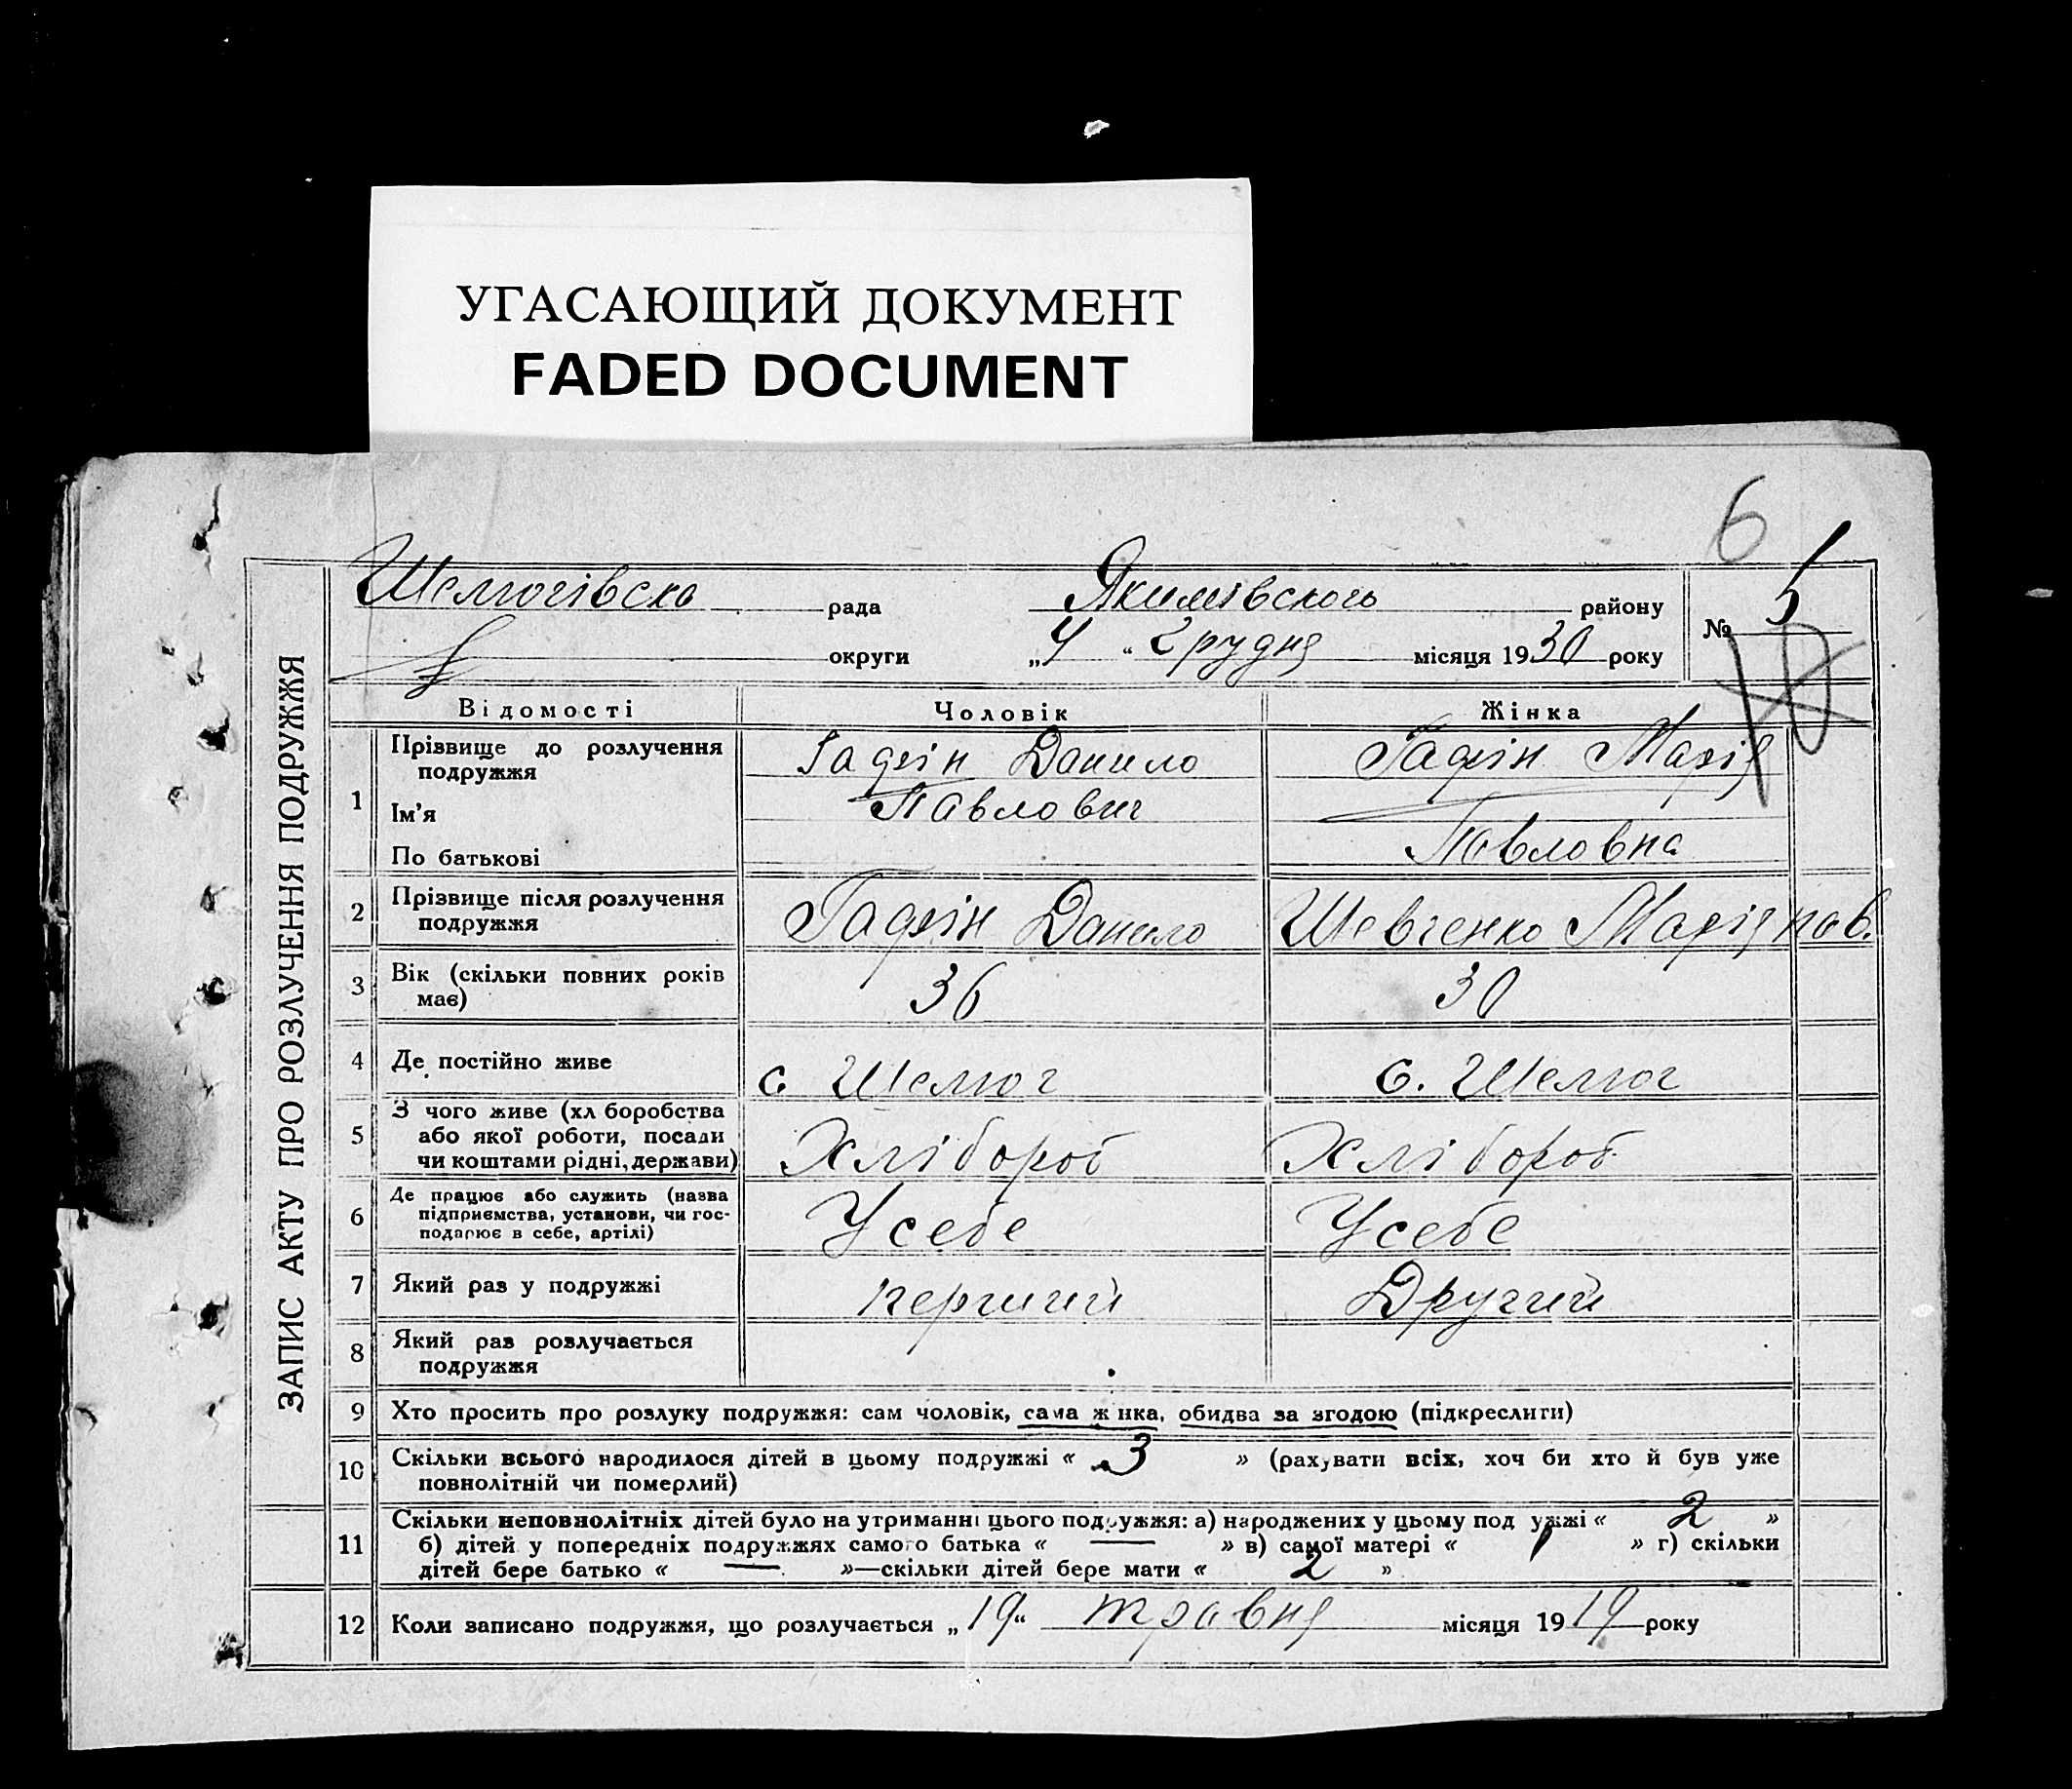 УГАСАЮЩИЙ ДОКУМЕНТ
FADED DOCUMENT
6
Шелюгівска рада Якимівського району № 5
округи „4“ Грудня місяця 1930 року
10
ЗАПИС АКТУ ПРО РОЗЛУЧЕННЯ ПОДРУЖЖЯ
Відомості Чоловік Жінка
1 Прізвище до розлучення подружжя Гафін Данило Гафін Марія
Ім'я Павлович
По батькові Павловна
2 Прізвище після розлучення подружжя Гафін Данило Шевченко Марія Пав.
3 Вік (скільки повних років має) 36 30
4 Де постійно живе с Шелюг с. Шелюг
5 З чого живе (хл боробства
або якої роботи, посади
чи коштами рідні, держави) Хлібороб Хлібороб
6 Де працює або служить (назва
підприємства, установи, чи гос-
подарює в себе, артілі) У себе У себе
7 Який раз у подружжі перший Другий
8 Який раз розлучається
подружжя
9 Хто просить про розлуку подружжя: сам чоловік, сама ж нка, обидва за згодою (підкреслити)
10 Скільки всього народилося дітей в цьому подружжі « 3 » (рахувати всіх, хоч би хто й був уже
повнолітній чи померлий)
11 Скільки неповнолітніх дітей було на утриманні цього подружжя: а) народжених у цьому под ужжі « 2 »
б) дітей у попередніх подружжях самого батька « — » в) самої матері « 1 » г) скільки
дітей бере батько « — »—скільки дітей бере мати « 2 »
12 Коли записано подружжя, що розлучається „19“ травня місяця 1919 року